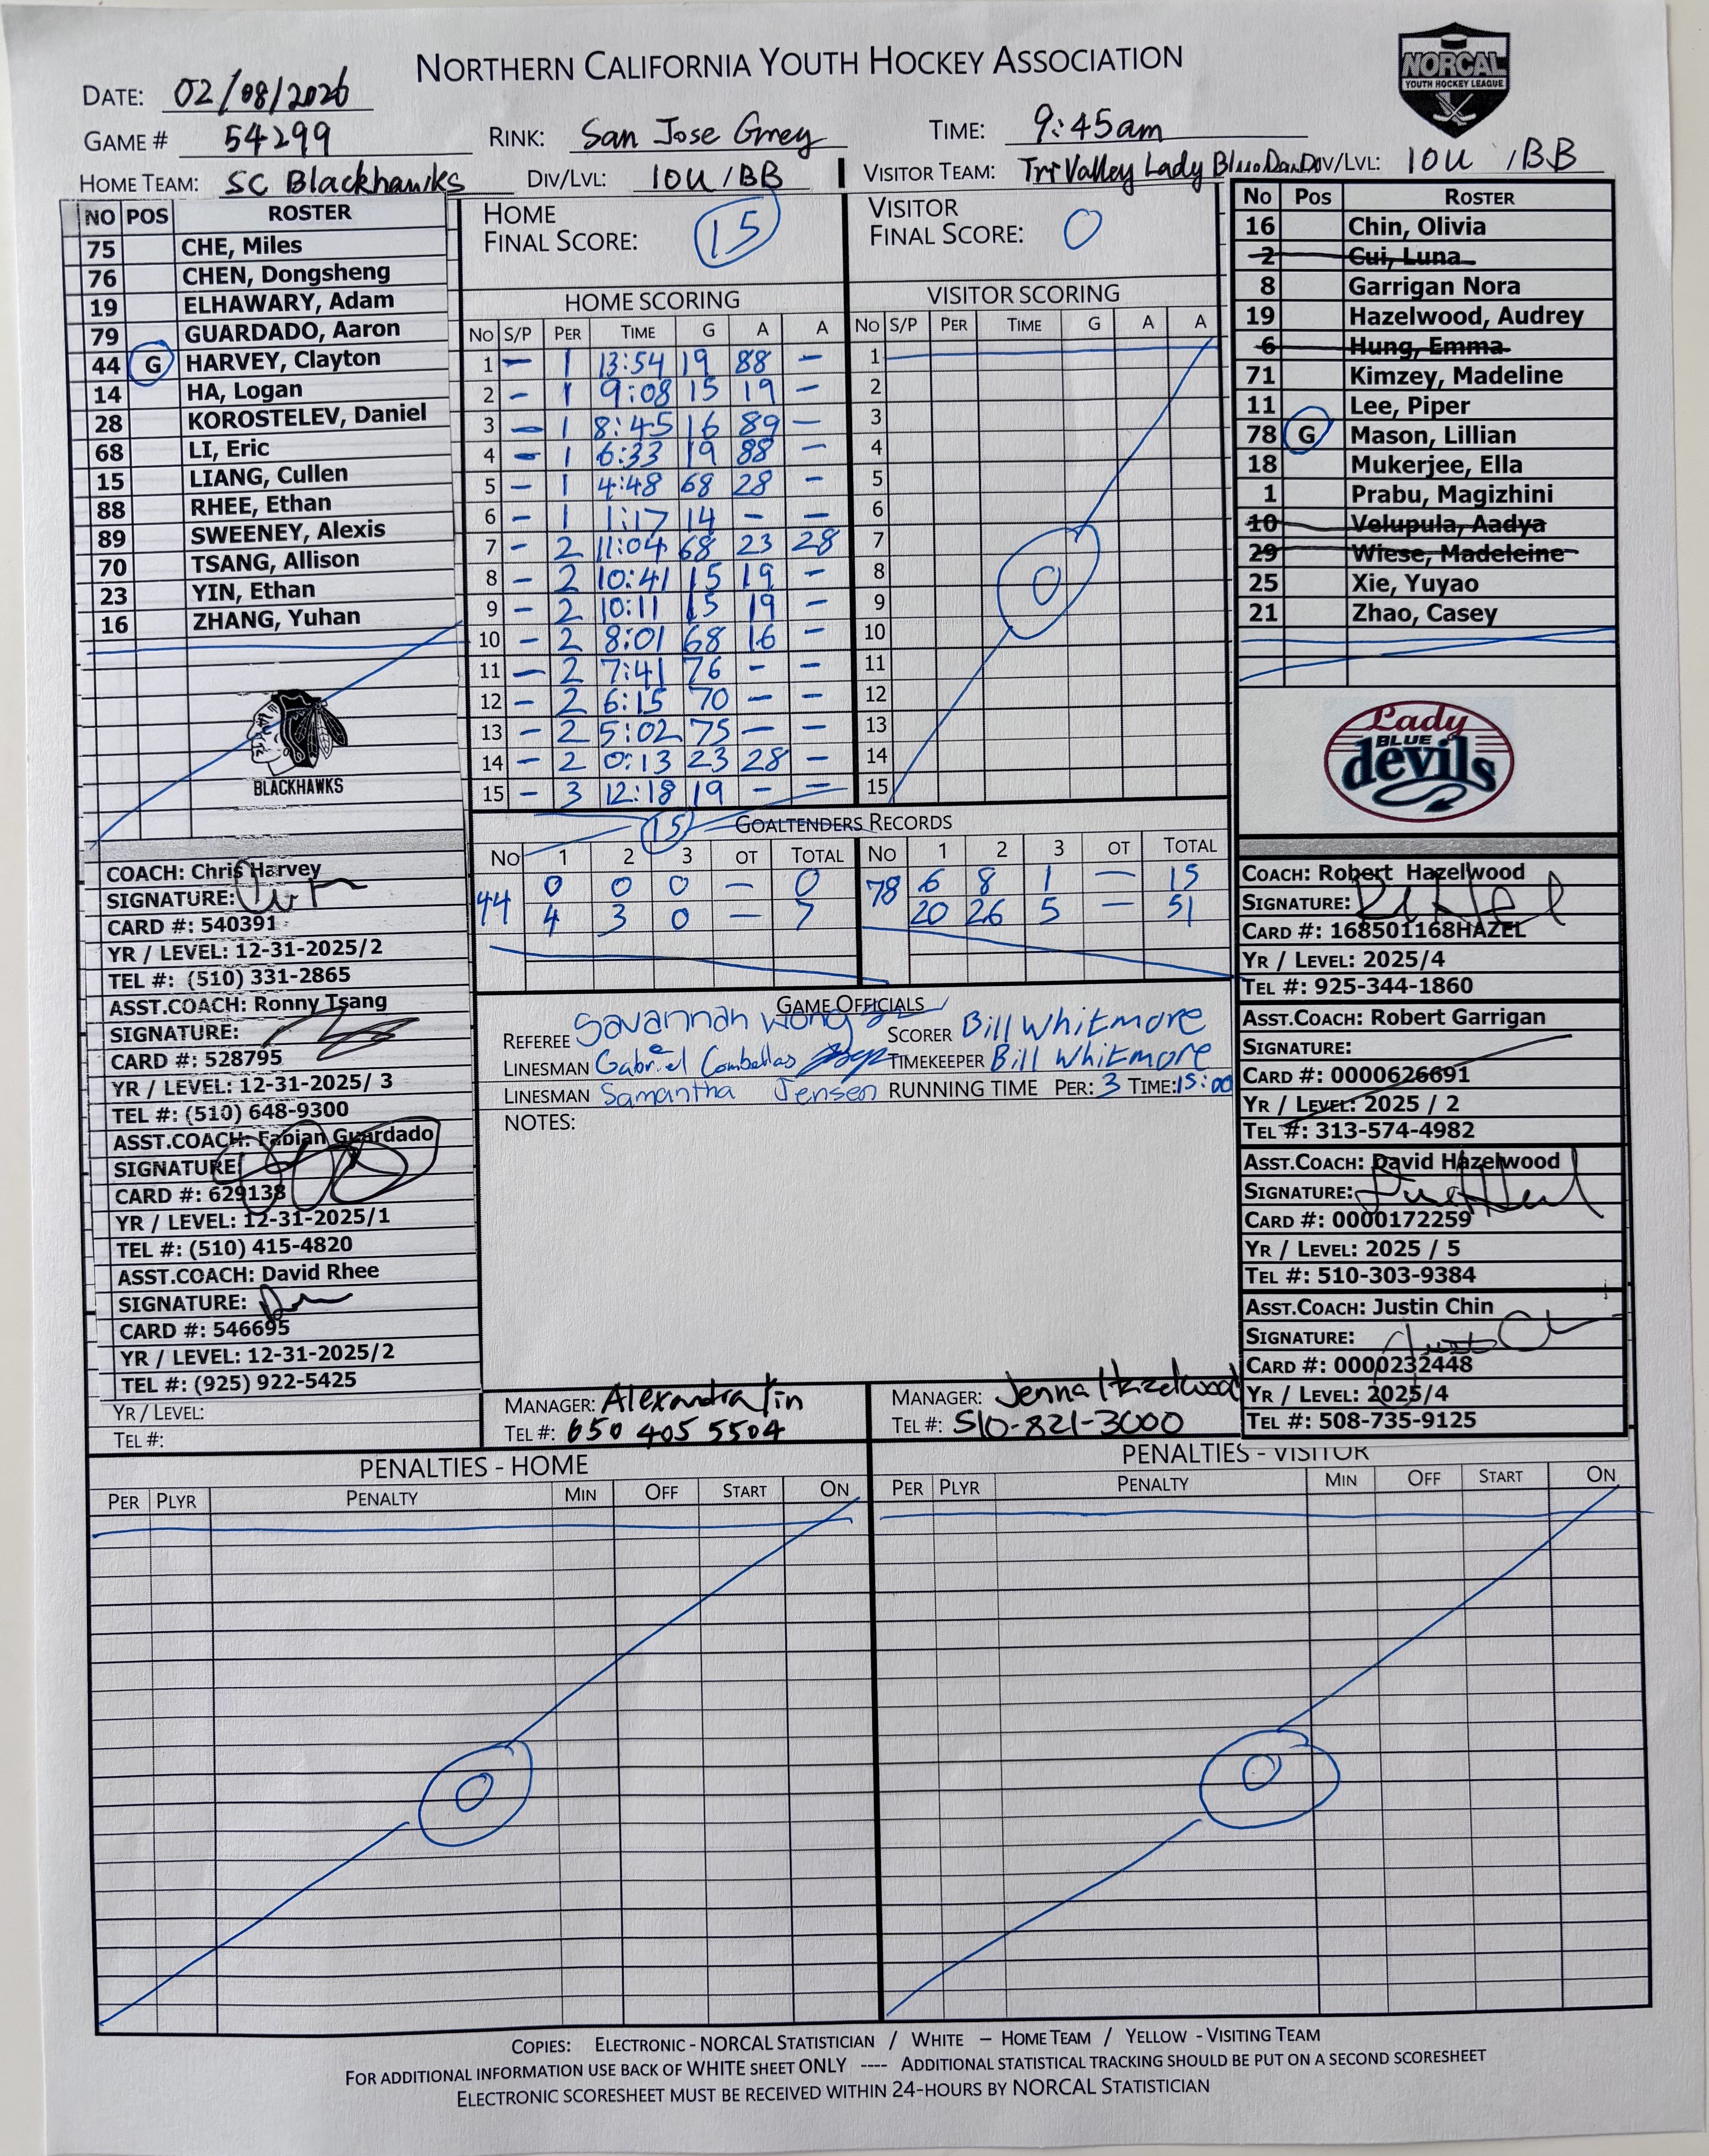 NORTHERN CALIFORNIA YOUTH HOCKEY ASSOCIATION
NORCAL
YOUTH HOCKEY LEAGUE
DATE: 02/08/2026
GAME # 54299 RINK: San Jose Grey TIME: 9:45am
HOME TEAM: SC Blackhawks DIV/LVL: 10U / BB VISITOR TEAM: Tri Valley Lady Blue DIV/LVL: 10U / BB
NO POS ROSTER
75 CHE, Miles
76 CHEN, Dongsheng
19 ELHAWARY, Adam
79 GUARDADO, Aaron
44 G HARVEY, Clayton
14 HA, Logan
28 KOROSTELEV, Daniel
68 LI, Eric
15 LIANG, Cullen
88 RHEE, Ethan
89 SWEENEY, Alexis
70 TSANG, Allison
23 YIN, Ethan
16 ZHANG, Yuhan
BLACKHAWKS
COACH: Chris Harvey
SIGNATURE:
CARD #: 540391
YR / LEVEL: 12-31-2025/2
TEL #: (510) 331-2865
ASST.COACH: Ronny Tsang
SIGNATURE:
CARD #: 528795
YR / LEVEL: 12-31-2025/ 3
TEL #: (510) 648-9300
ASST.COACH: Fabian Guardado
SIGNATURE:
CARD #: 629138
YR / LEVEL: 12-31-2025/1
TEL #: (510) 415-4820
ASST.COACH: David Rhee
SIGNATURE:
CARD #: 546695
YR / LEVEL: 12-31-2025/2
TEL #: (925) 922-5425
YR / LEVEL:
TEL #:
HOME
FINAL SCORE: 15
HOME SCORING
NO S/P PER TIME G A A
1 – 1 13:54 19 88 –
2 – 1 9:08 15 19 –
3 – 1 8:45 16 89 –
4 – 1 6:33 19 88 –
5 – 1 4:48 68 28 –
6 – 1 1:17 14 – –
7 – 2 11:04 68 23 28
8 – 2 10:41 15 19 –
9 – 2 10:11 15 19 –
10 – 2 8:01 68 16 –
11 – 2 7:41 76 – –
12 – 2 6:15 70 – –
13 – 2 5:02 75 – –
14 – 2 0:13 23 28 –
15 – 3 12:18 19 – –
15
VISITOR
FINAL SCORE: 0
VISITOR SCORING
NO S/P PER TIME G A A
1
2
3
4
5
6
7
8
9
10
11
12
13
14
15
0
GOALTENDERS RECORDS
NO 1 2 3 OT TOTAL NO 1 2 3 OT TOTAL
44 0 0 0 – 0 78 6 8 1 – 15
4 3 0 – 7 20 26 5 – 51
GAME OFFICIALS
REFEREE Savannah Wong SCORER Bill Whitmore
LINESMAN Gabriel Combellas TIMEKEEPER Bill Whitmore
LINESMAN Samantha Jensen RUNNING TIME PER: 3 TIME: 15:00
NOTES:
MANAGER: Alexandra Yin MANAGER: Jenna Hazelwood
TEL #: 650 405 5504 TEL #: 510-821-3000
NO POS ROSTER
16 Chin, Olivia
2 Cui, Luna
8 Garrigan Nora
19 Hazelwood, Audrey
6 Hung, Emma
71 Kimzey, Madeline
11 Lee, Piper
78 G Mason, Lillian
18 Mukerjee, Ella
1 Prabu, Magizhini
10 Velupula, Aadya
29 Wiese, Madeleine
25 Xie, Yuyao
21 Zhao, Casey
Lady
BLUE
devils
COACH: Robert Hazelwood
SIGNATURE:
CARD #: 168501168HAZEL
YR / LEVEL: 2025/4
TEL #: 925-344-1860
ASST.COACH: Robert Garrigan
SIGNATURE:
CARD #: 0000626691
YR / LEVEL: 2025 / 2
TEL #: 313-574-4982
ASST.COACH: David Hazelwood
SIGNATURE:
CARD #: 0000172259
YR / LEVEL: 2025 / 5
TEL #: 510-303-9384
ASST.COACH: Justin Chin
SIGNATURE:
CARD #: 0000232448
YR / LEVEL: 2025/4
TEL #: 508-735-9125
PENALTIES - HOME
PER PLYR PENALTY MIN OFF START ON
0
PENALTIES - VISITOR
PER PLYR PENALTY MIN OFF START ON
0
COPIES: ELECTRONIC - NORCAL STATISTICIAN / WHITE – HOME TEAM / YELLOW - VISITING TEAM
FOR ADDITIONAL INFORMATION USE BACK OF WHITE SHEET ONLY ---- ADDITIONAL STATISTICAL TRACKING SHOULD BE PUT ON A SECOND SCORESHEET
ELECTRONIC SCORESHEET MUST BE RECEIVED WITHIN 24-HOURS BY NORCAL STATISTICIAN